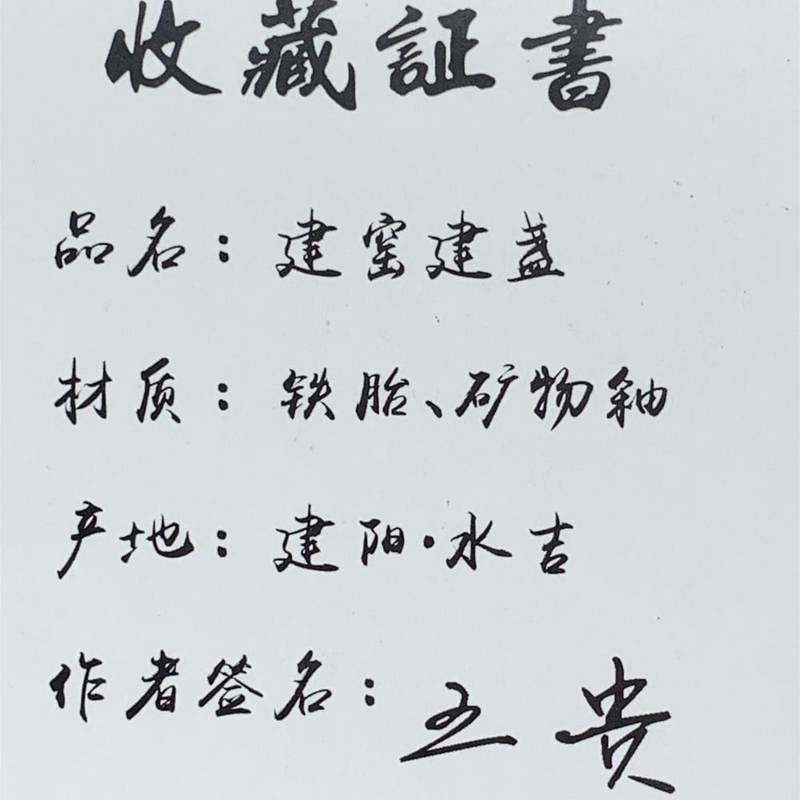 收藏証書
品名：建窑建盏
材质：铁胎、矿物釉
产地：建阳·水吉
作者签名：王贵